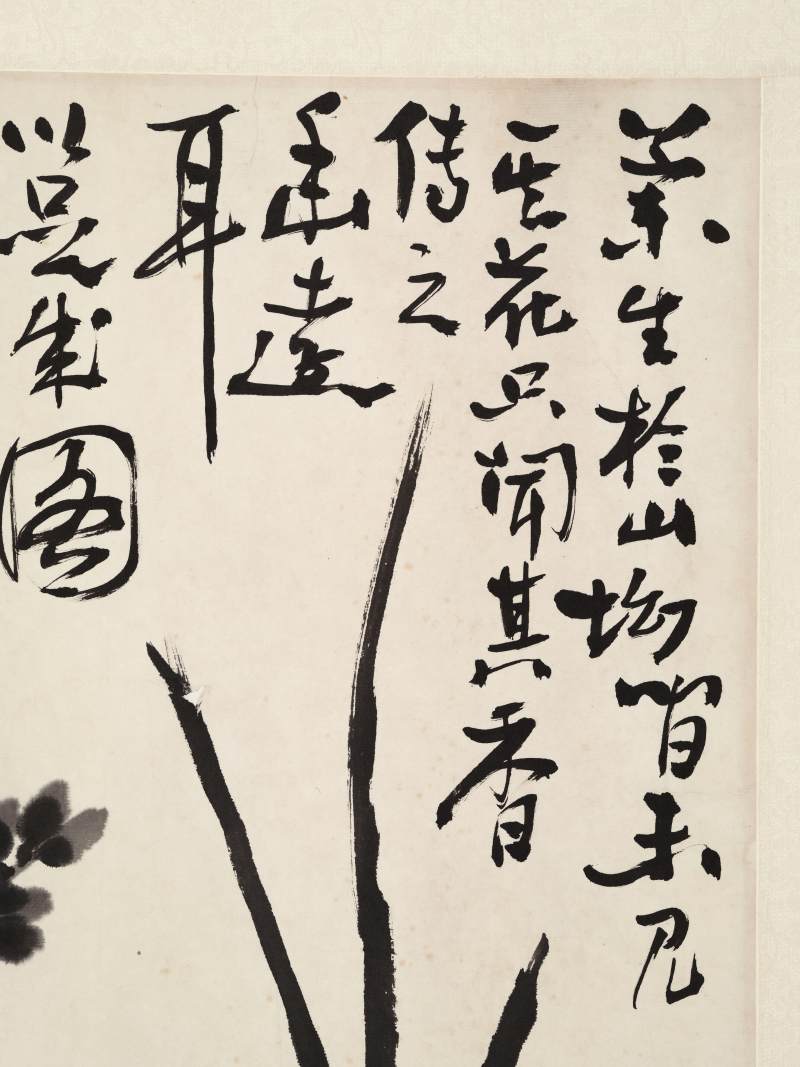 蘭生於山坳間未見
其花只聞其香
傳之
遠
耳
以是成圖